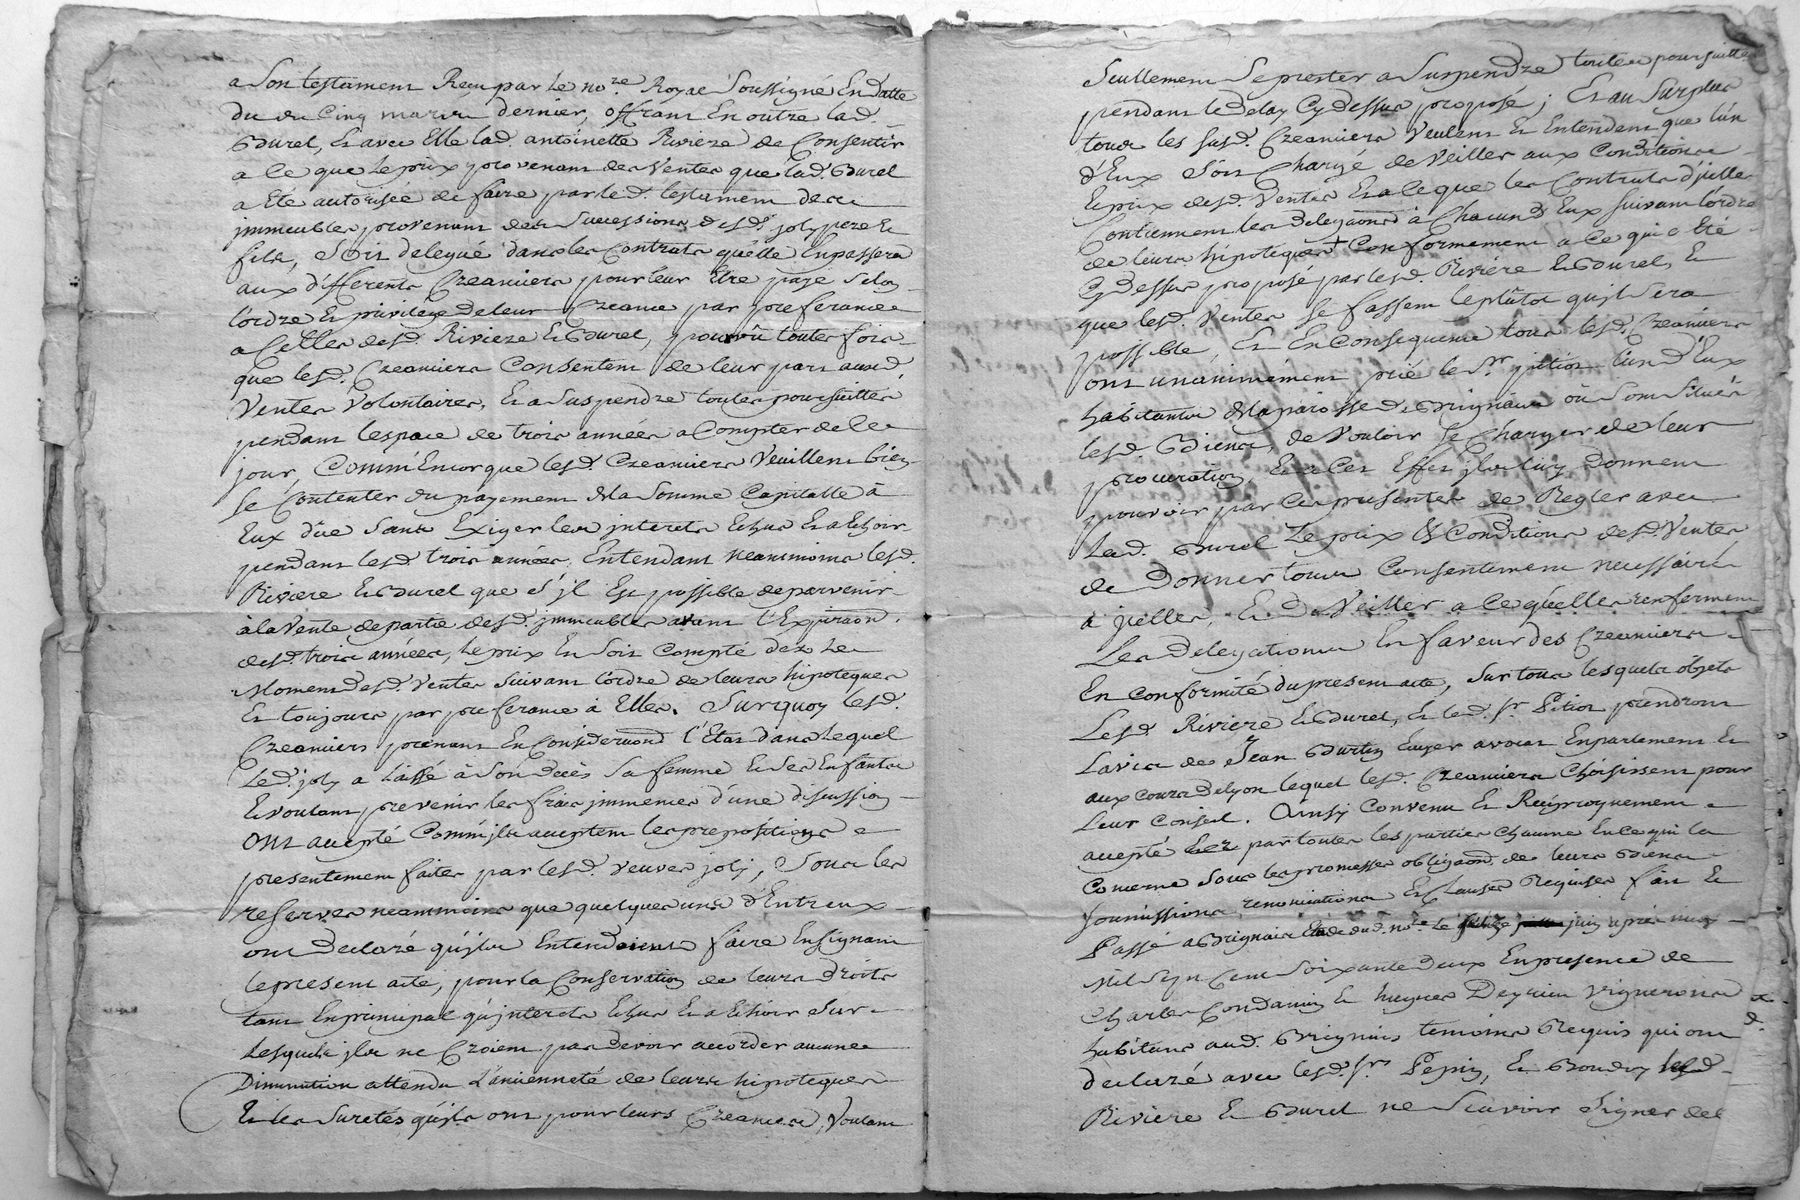 a Son testament Recu par le no.re Royal Soussigné En datte
du cinq mars dernier, offrant En outre lad.
Burel, Et avec Elle lad. antoinette Riviere de Consentir
a Ce que le prix provenant des Ventes que lad. Burel
a Eté autorisée de faire par led. testament des
immeubles provenant des Successions desd. joly pere Et
fils, Soit delegué dans les Contrats quelle En passera
aux differents Creanciers pour leur Etre payé Selon
l'ordre Et privilege de leur Creance par preferance
a Celles desd. Riviere Et Burel, pourvû toutes fois
que lesd. Creanciers Consentent de leur part auxd.
Ventes Volontaires, Et a Suspendre toutes poursuittes
pendant lespace de trois années a Compter de Ce
jour, Comm'Encor que lesd. Creanciers Veuillent bien
Se Contenter du payement de la Somme Capitalle à
Eux dûe Sans Exiger les interets Echus Et a Echoir
pendant lesd. trois années, Entendant neanmoins lesd.
Riviere Et Burel que s'jl Est possible de parvenir
à la Vente de partie desd. jmmeubles avant l'Expiraon.
desd. trois années, le prix En Soit Compté dez le
Moment desd. Ventes Suivant l'ordre de leurs hipoteques
Et toujours par preferance à Elles. Surquoy lesd.
Creanciers prenant En Consideraond l'Etat dans lequel
led. joly a Laissé à Son decès Sa femme Et Ses Enfants
Et voulant prevenir les frais jmmenses d'une discussion
ont accepté Comm'jls acceptent les propositions
presentement faites par lesd. veuves joly, Sous les
reserves neanmoins que quelques uns d'Entreux
ont declaré qu'jls Entendoient faire En Signant
le present acte, pour la Conservation de leurs droits
tant En principal qu'jnterets Echus Et a Echoir Sur
Lesquels jls ne Croient pas devoir accorder aucune
Diminution attendu L'ancienneté de leurs hipoteques
Et les Suretés qu'jls ont pour leurs Creances, Voulant
Seullement Se prester a Suspendre toutes poursuittes
pendant le delay Cy dessus proposé ; Et au Surplus
tous les susd. Creanciers Veulent Et Entendent que l'un
d'Eux Soit Chargé de Veiller aux Conditions
Et prix desd. Ventes Et a Ce que les Contrats d'jcelles
Contiennent les delegaons à Chacun d'Eux Suivant l'ordre
de leurs hipoteques + Conformement a Ce qui a Eté
Cy dessus proposé par lesd. Riviere Et Burel, Et
que lesd. Ventes Se fassent le plûtot qu'jl Sera
possible, Et En Consequence tous lesd. Creanciers
ont unanimement prié le S.r pitiot l'un d'Eux
habitant de la paroisse de Brignais où Sont Situés
lesd. Biens, de Vouloir Se Charger de leur
procuration, Et a Cet Effet jls luy donnent
pouvoir par Ces presentes de Regler avec
Lad. Burel Le prix Et Conditions desd. Ventes
de Donner tous Consentement necessaires
a jcelles, Et de Veiller a Ce qu'elles renferment
Les Delegations En faveur des Creanciers
En Conformité du present acte, Sur tous lesquels objets
Lesd Riviere Et Burel, Et led. S.r Pitiot prendront
Lavis de Jean Burtin Ecuyer avocat En parlement Et
aux Cours de lyon lequel lesd. Creanciers Choisissent pour
Leur Conseil. Ainsy Convenu Et Reciproquement
accepté par toutes les parties Chacune En Ce qui la
Concerne Sous les promesses obligaond. de leurs Biens
Soumissions, renonciations Et Clauses Requises fait Et
Passé a Brignais Etude dud. no.re Le juin après midy
Mil Sept Cent Soixante deux En presence de
Charles Condamin Et hugues Vignerons
habitans aud. Brignais temoins Requis qui ont
declaré avec lesd. S.rs Pepin, Et Boudoy lesd
Riviere Et Burel ne Scavoir Signer de